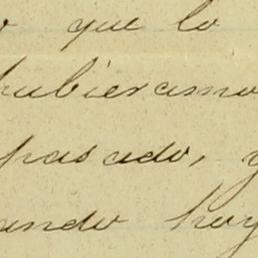 o que lo
hubieramo
pasado, y
ando hoy